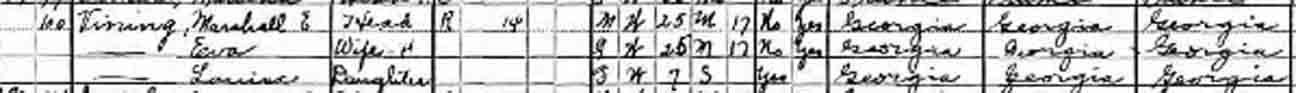 60 Vining, Marshall E Head R 14 M W 25 M 17 No Yes Georgia Georgia Georgia
— Eva Wife-H F W 25 M 17 No Yes Georgia Georgia Georgia
— Louise Daughter F W 7 S Yes Georgia Georgia Georgia